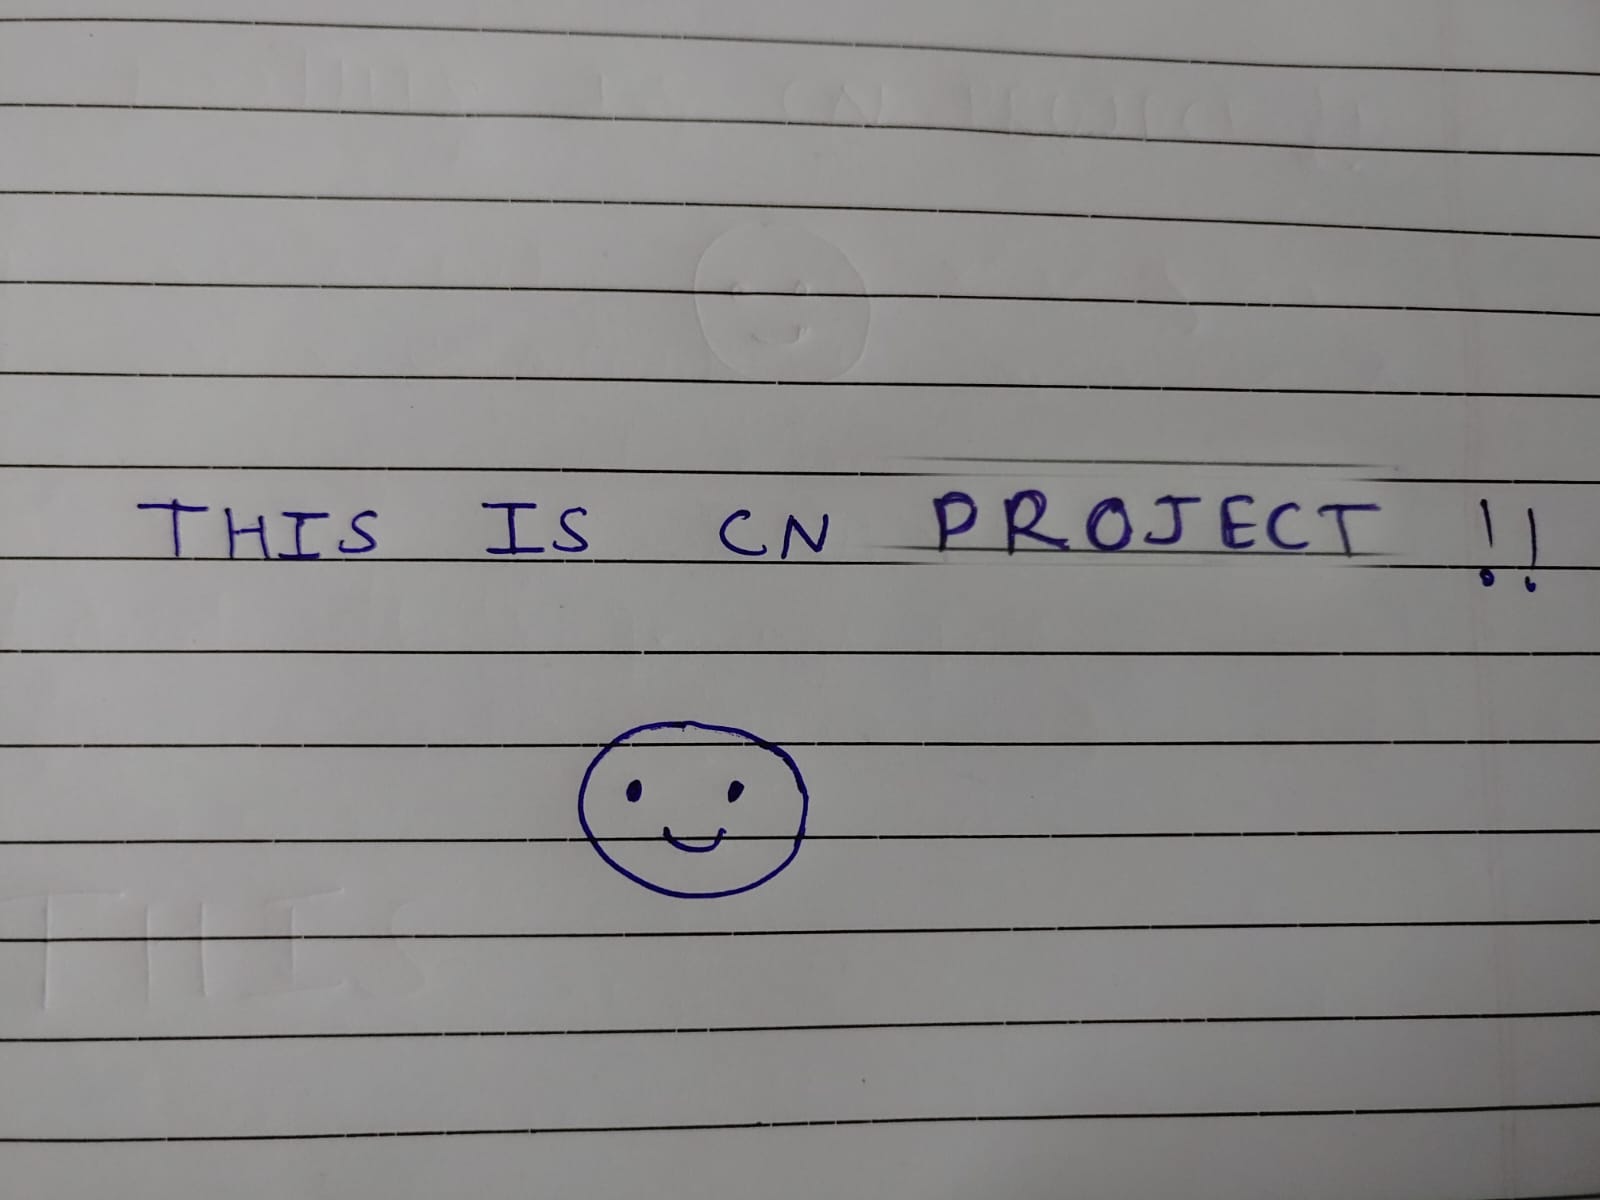 THIS IS CN PROJECT !!